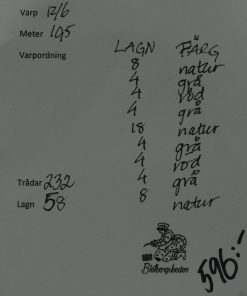 Varp 12/6
Meter 10,5
Varpordning LAGN FÄRG
8 natur
4 grå
4 röd
4 grå
18 natur
4 grå
4 röd
4 grå
8 natur
Trådar 232
Lagn 58
596:-